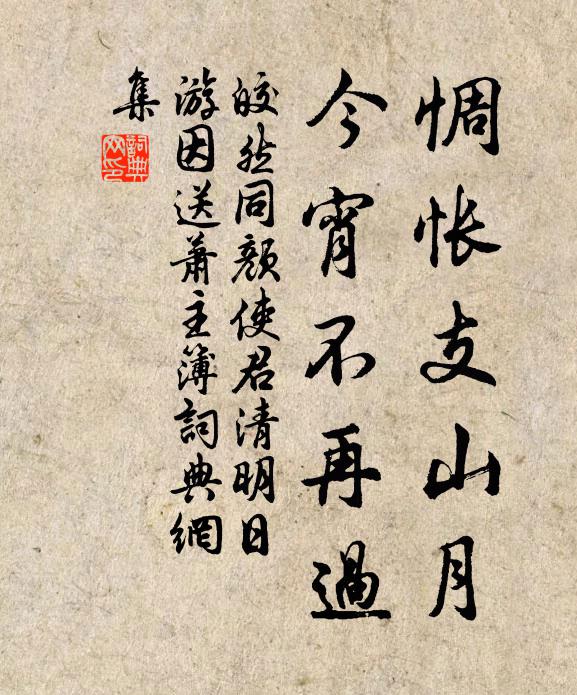 惆怅支山月
今宵不再過
皎然同顏使君清明日
游因送蕭主簿詞典網
集
詞典
网印